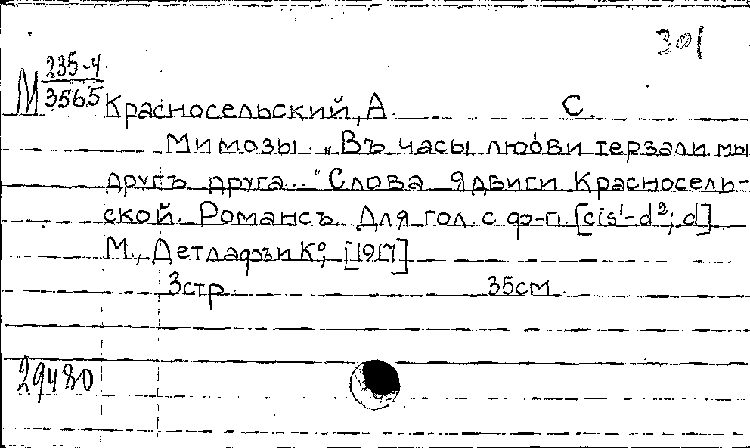 301
М 235-4
3565
Красносельский, А. С.
Мимозы. „Въ часы любви терзали мы
другъ друга..." Слова Ядвиги Красносель-
ской. Романсъ. Для гол. с ф-п. [cis¹-d²; d]
М., Детлафъ и К°, [1917]
3 стр. 35 см.
29480